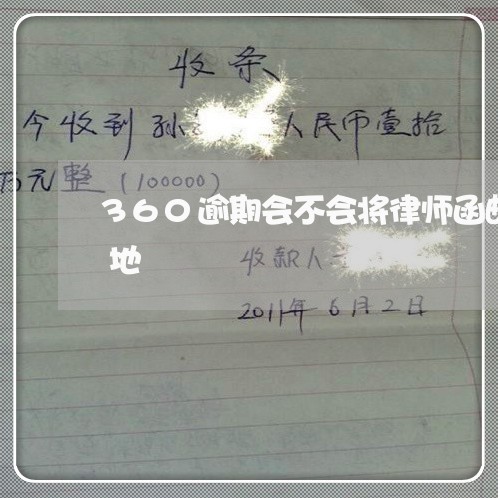 收条
今收到孙人民币壹拾
万元整(100000)
360逾期会不会将律师函
地
收款人
2011年6月2日